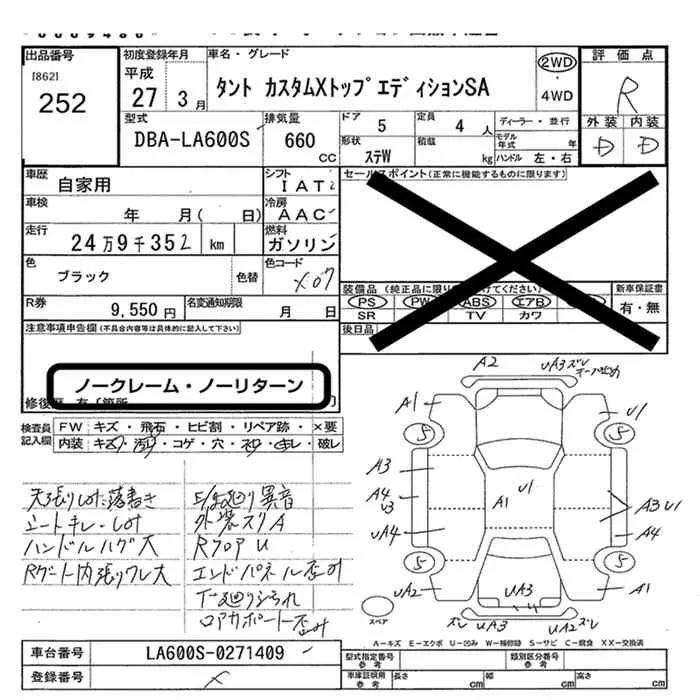 出品番号
[862]
252
初度登録年月
平成
27 3月
車名・グレード
タント カスタムXトップエディションSA
2WD
4WD
評価点
R
外装 内装
D D
型式
DBA-LA600S
排気量
660
CC
ドア
5
定員
4 人
ディーラー・並行
形状
ステW
積載
kg
モデル年式 年
ハンドル 左・右
車歴
自家用
シフト
IAT
車検
年 月( 日)
冷房
AAC
走行
24万9千352 km
燃料
ガソリン
色
ブラック
色替
色コード
X07
R券
9,550円
名変通知期限
月 日
セールスポイント(正常に機能するものに限ります)
装備品
PS PW ABS エアB
SR TV カワ
後日品
新車保証書
有・無
注意事項申告欄(不具合内容等は具体的に記入して下さい)
ノークレーム・ノーリターン
検査員記入欄
FW キズ・飛石・ヒビ割・リペア跡・×要
内装 キズ・汚れ・コゲ・穴・・キレ・破レ
天張りしot:落書き
シートキレ・しot
ハンドルハゲ大
Rゲート内張りワレ大
E/g廻り異音
外装スリA
RフロアU
エンドパネル歪み
下廻り
ロアサポート歪み
A2
UA3ズレ
A1
U1
5
5
A3
A4
U3
UA4
A1
U1
A3 U1
A4
5
5
UA2
UA3
A1
ズレ UA3
UA2ズレ
スペア
A−キズ E−エクボ U−凹み W−補修跡 S−サビ C−腐食 XX−交換済
車台番号
LA600S-0271409
登録番号
型式指定番号
参考
類別区分番号
参考
車庫証明用
参考
長さ cm
幅 cm
高さ cm